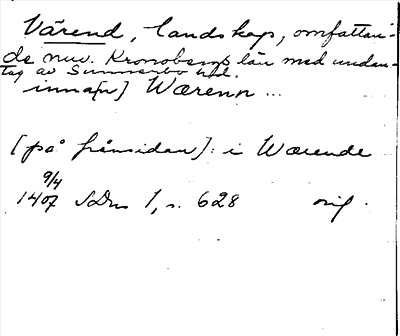 Värend, landskap, omfattan-
de nuv. Kronobergs län med undan-
tag av Sunnerbo hd.
inna[n] Wærenn ...
[på frånsidan]: i Wærende
9/4
1407 SDns 1, s. 628 orig.